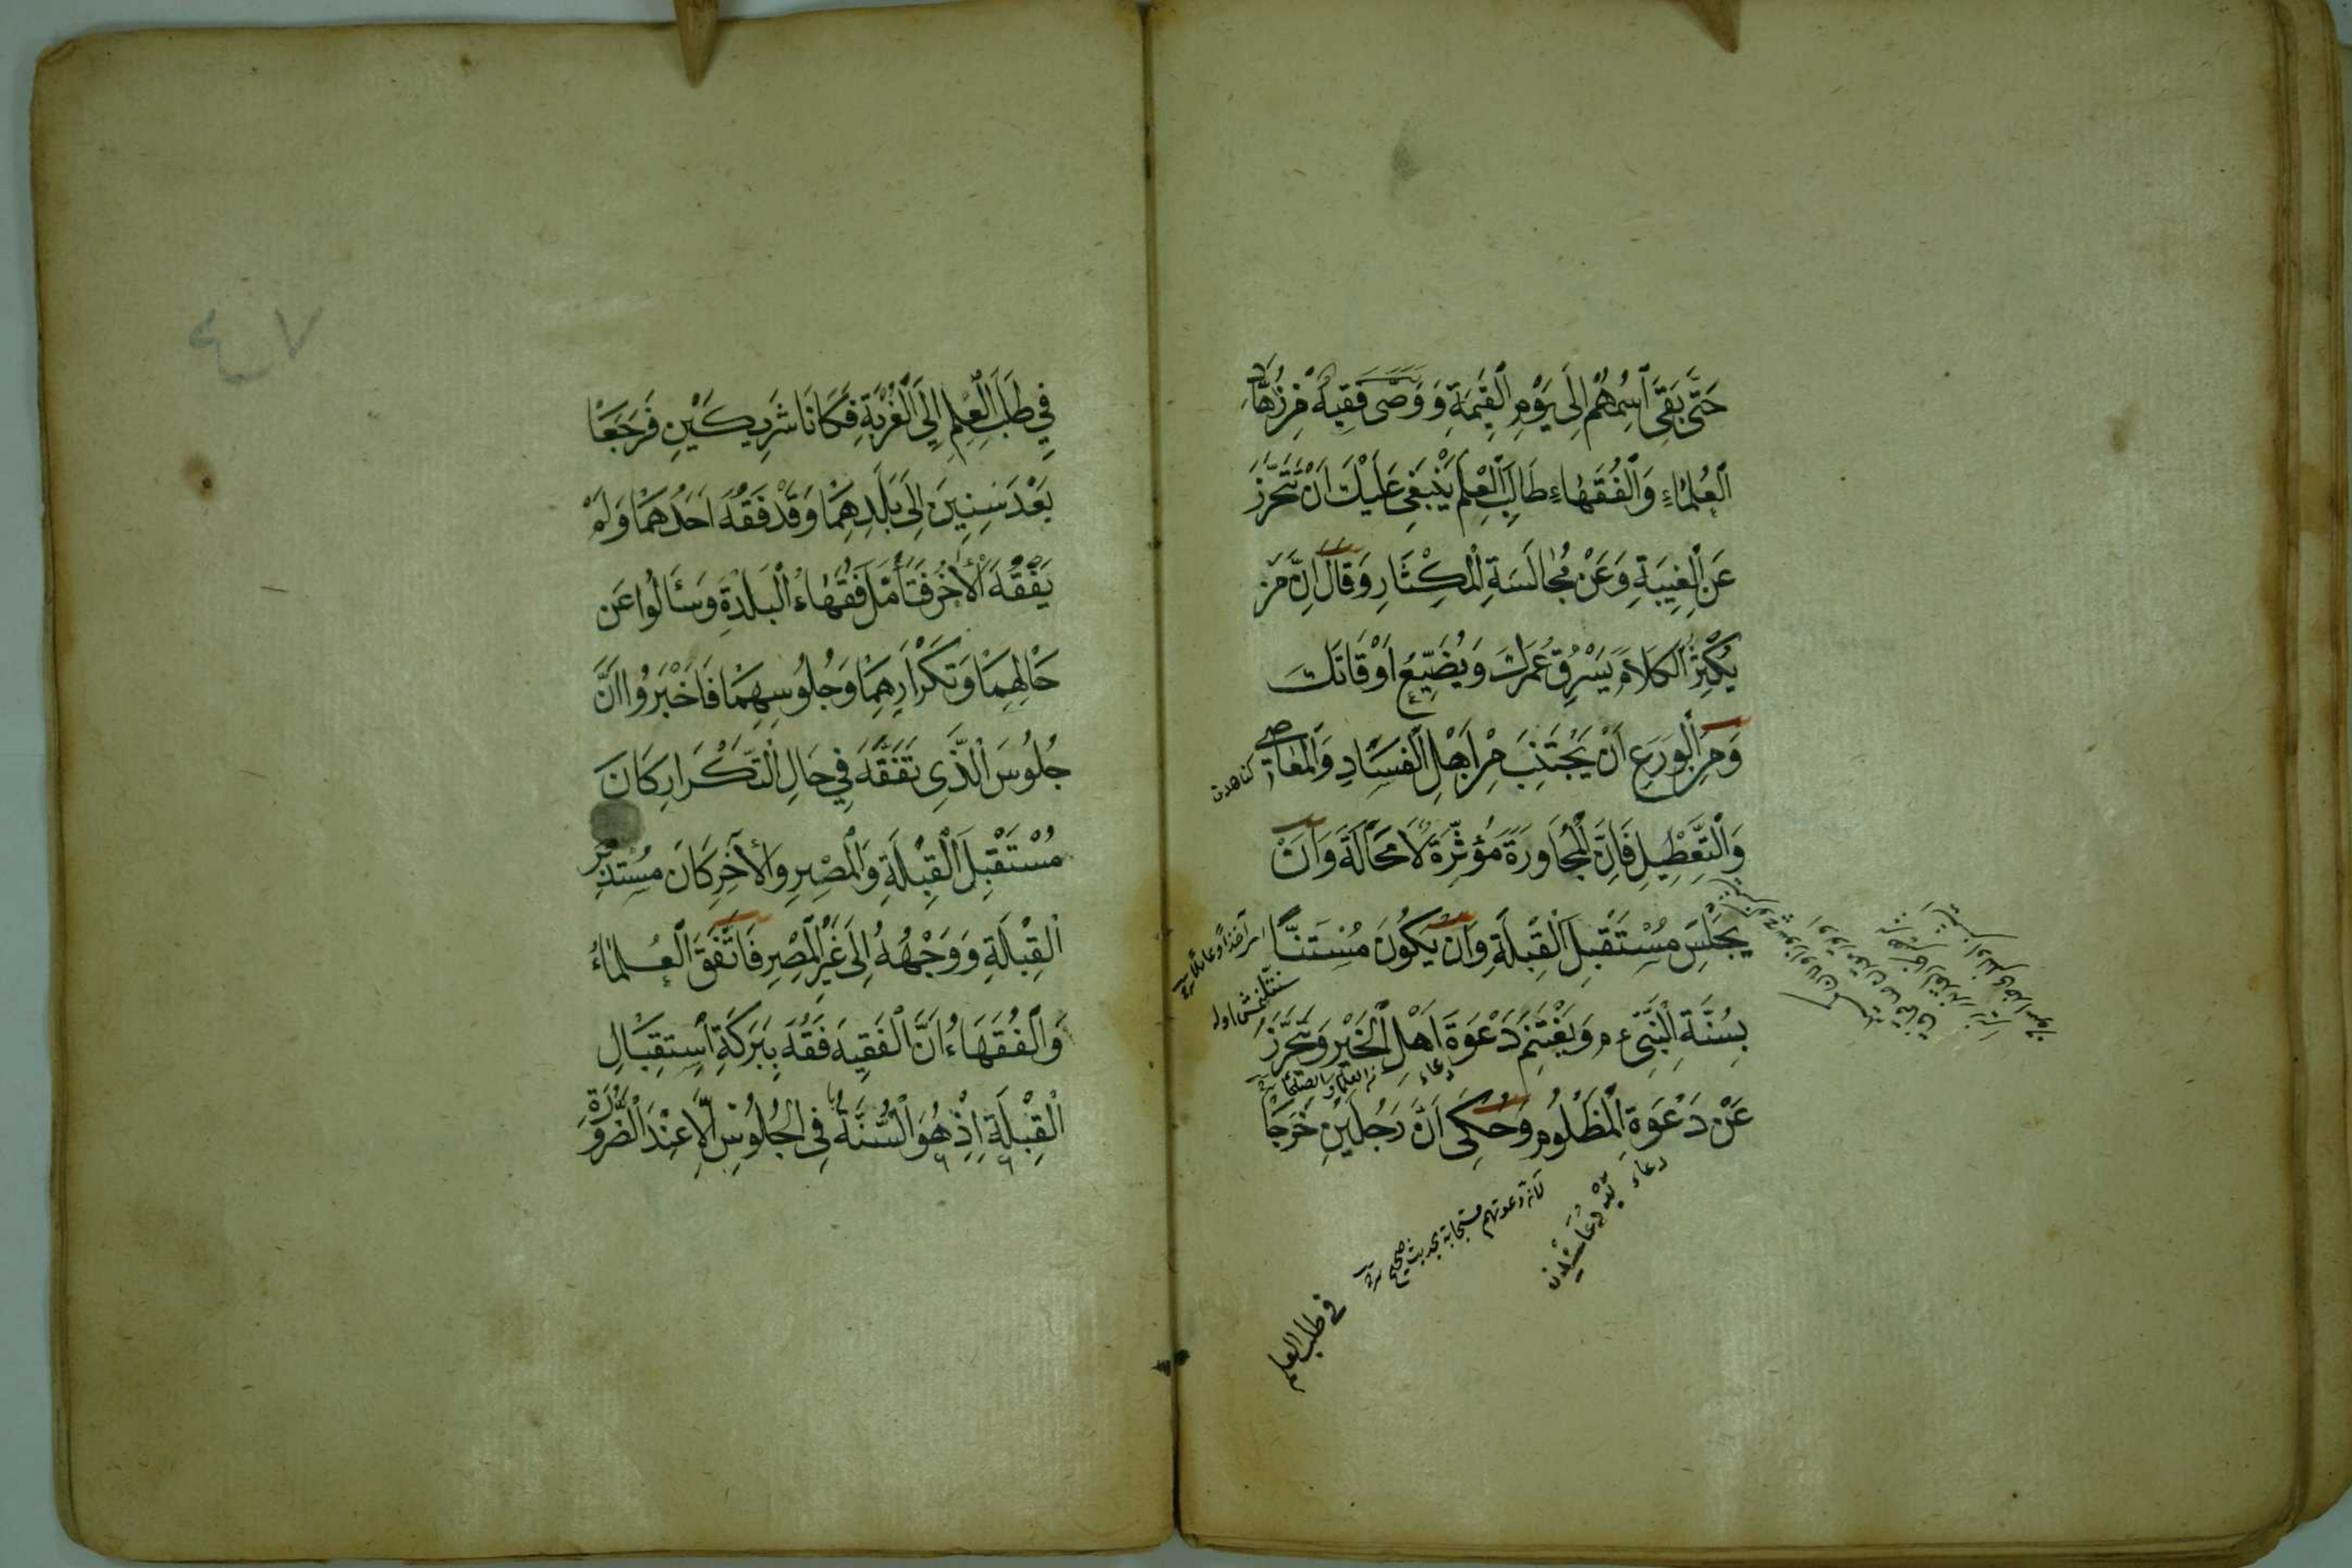 حَتَّى بَقَِى اسْمُهُمْ اِلَى يَوْمِ الْقِيمَةِ وَ وَصَّى فَقِيهٌ مِنْ زُهَّادِ
الْعُلَمَاءِ وَالْفُقَهَاءِ طَالِبَ الْعِلْمِ يَنْبَغِى عَلَيْكَ اَنْ تَتَحَرَّزَ
عَنِ الْغِيبَةِ وَعَنْ مُجَالَسَةِ الْمِكْثَارِ وَقَالَ اِنَّ مَنْ
يُكْثِرُ الْكَلَامَ يَسْرِقُ عُمَرَكَ وَيُضَيِّعُ اَوْقَاتَكَ
وَمِنَ الْوَرَعِ اَنْ يَجْتَنِبَ مِنْ اَهْلِ الْفَسَادِ وَالْمَعَاصِى
وَالتَّعْطِيلِ فَاِنَّ الْمُجَاوَرَةَ مُؤَثِّرَةٌ لَا مَحَالَةَ وَاَنْ
يَجْلِسَ مُسْتَقْبِلَ الْقِبْلَةِ وَاَنْ يَكُونَ مُسْتَنًّا
بِسُنَّةِ النَّبِىِّ ء م وَيَغْتَنِمُ دَعْوَةَ اَهْلِ الْخَيْرِ وَتَحَرَّزَ
عَنْ دَعْوَةِ الْمَظْلُومِ وَحُكِىَ اَنَّ رَجُلَيْنِ خَرَجَا
دعاء
لانه دعوتهم مستجابة بحديث صحيح
فى طلب العلم
فِى طَلَبِ الْعِلْمِ اِلَى الْغُرْبَةِ فَكَانَا شَرِيكَيْنِ فَرَجَعَا
بَعْدَ سِنِينَ اِلَى بَلَدِهِمَا وَقَدْ فَقُهَ اَحَدُهُمَا وَلَمْ
يَفْقَهْ الْاٰخَرُ فَتَأَمَّلَ فُقَهَاءُ الْبَلْدَةِ وَسَئَالُوا عَنْ
حَالِهِمَا وَتَكْرَارِهِمَا وَجُلُوسِهِمَا فَاَخْبَرُوا اَنَّ
جُلُوسَ الَّذِى تَفَقَّهَ فِى حَالِ التَّكْرَارِ كَانَ
مُسْتَقْبِلَ الْقِبْلَةِ وَالْمِصْرِ وَالْآخَرِ كَانَ مُسْتَدْبِرَ
الْقِبْلَةِ وَ وَجْهُهُ اِلَى غَيْرِ الْمِصْرِ فَاتَّفَقَ الْعُلَمَاءُ
وَالْفُقَهَاءُ اَنَّ الْفَقِيهَ فَقُهَ بِبَرَكَةِ اسْتِقْبَالِ
الْقِبْلَةِ اِذْ هُوَ السُّنَّةُ فِى الْجُلُوسِ اِلَّا عِنْدَ الضَّرُورَةِ
٤٧